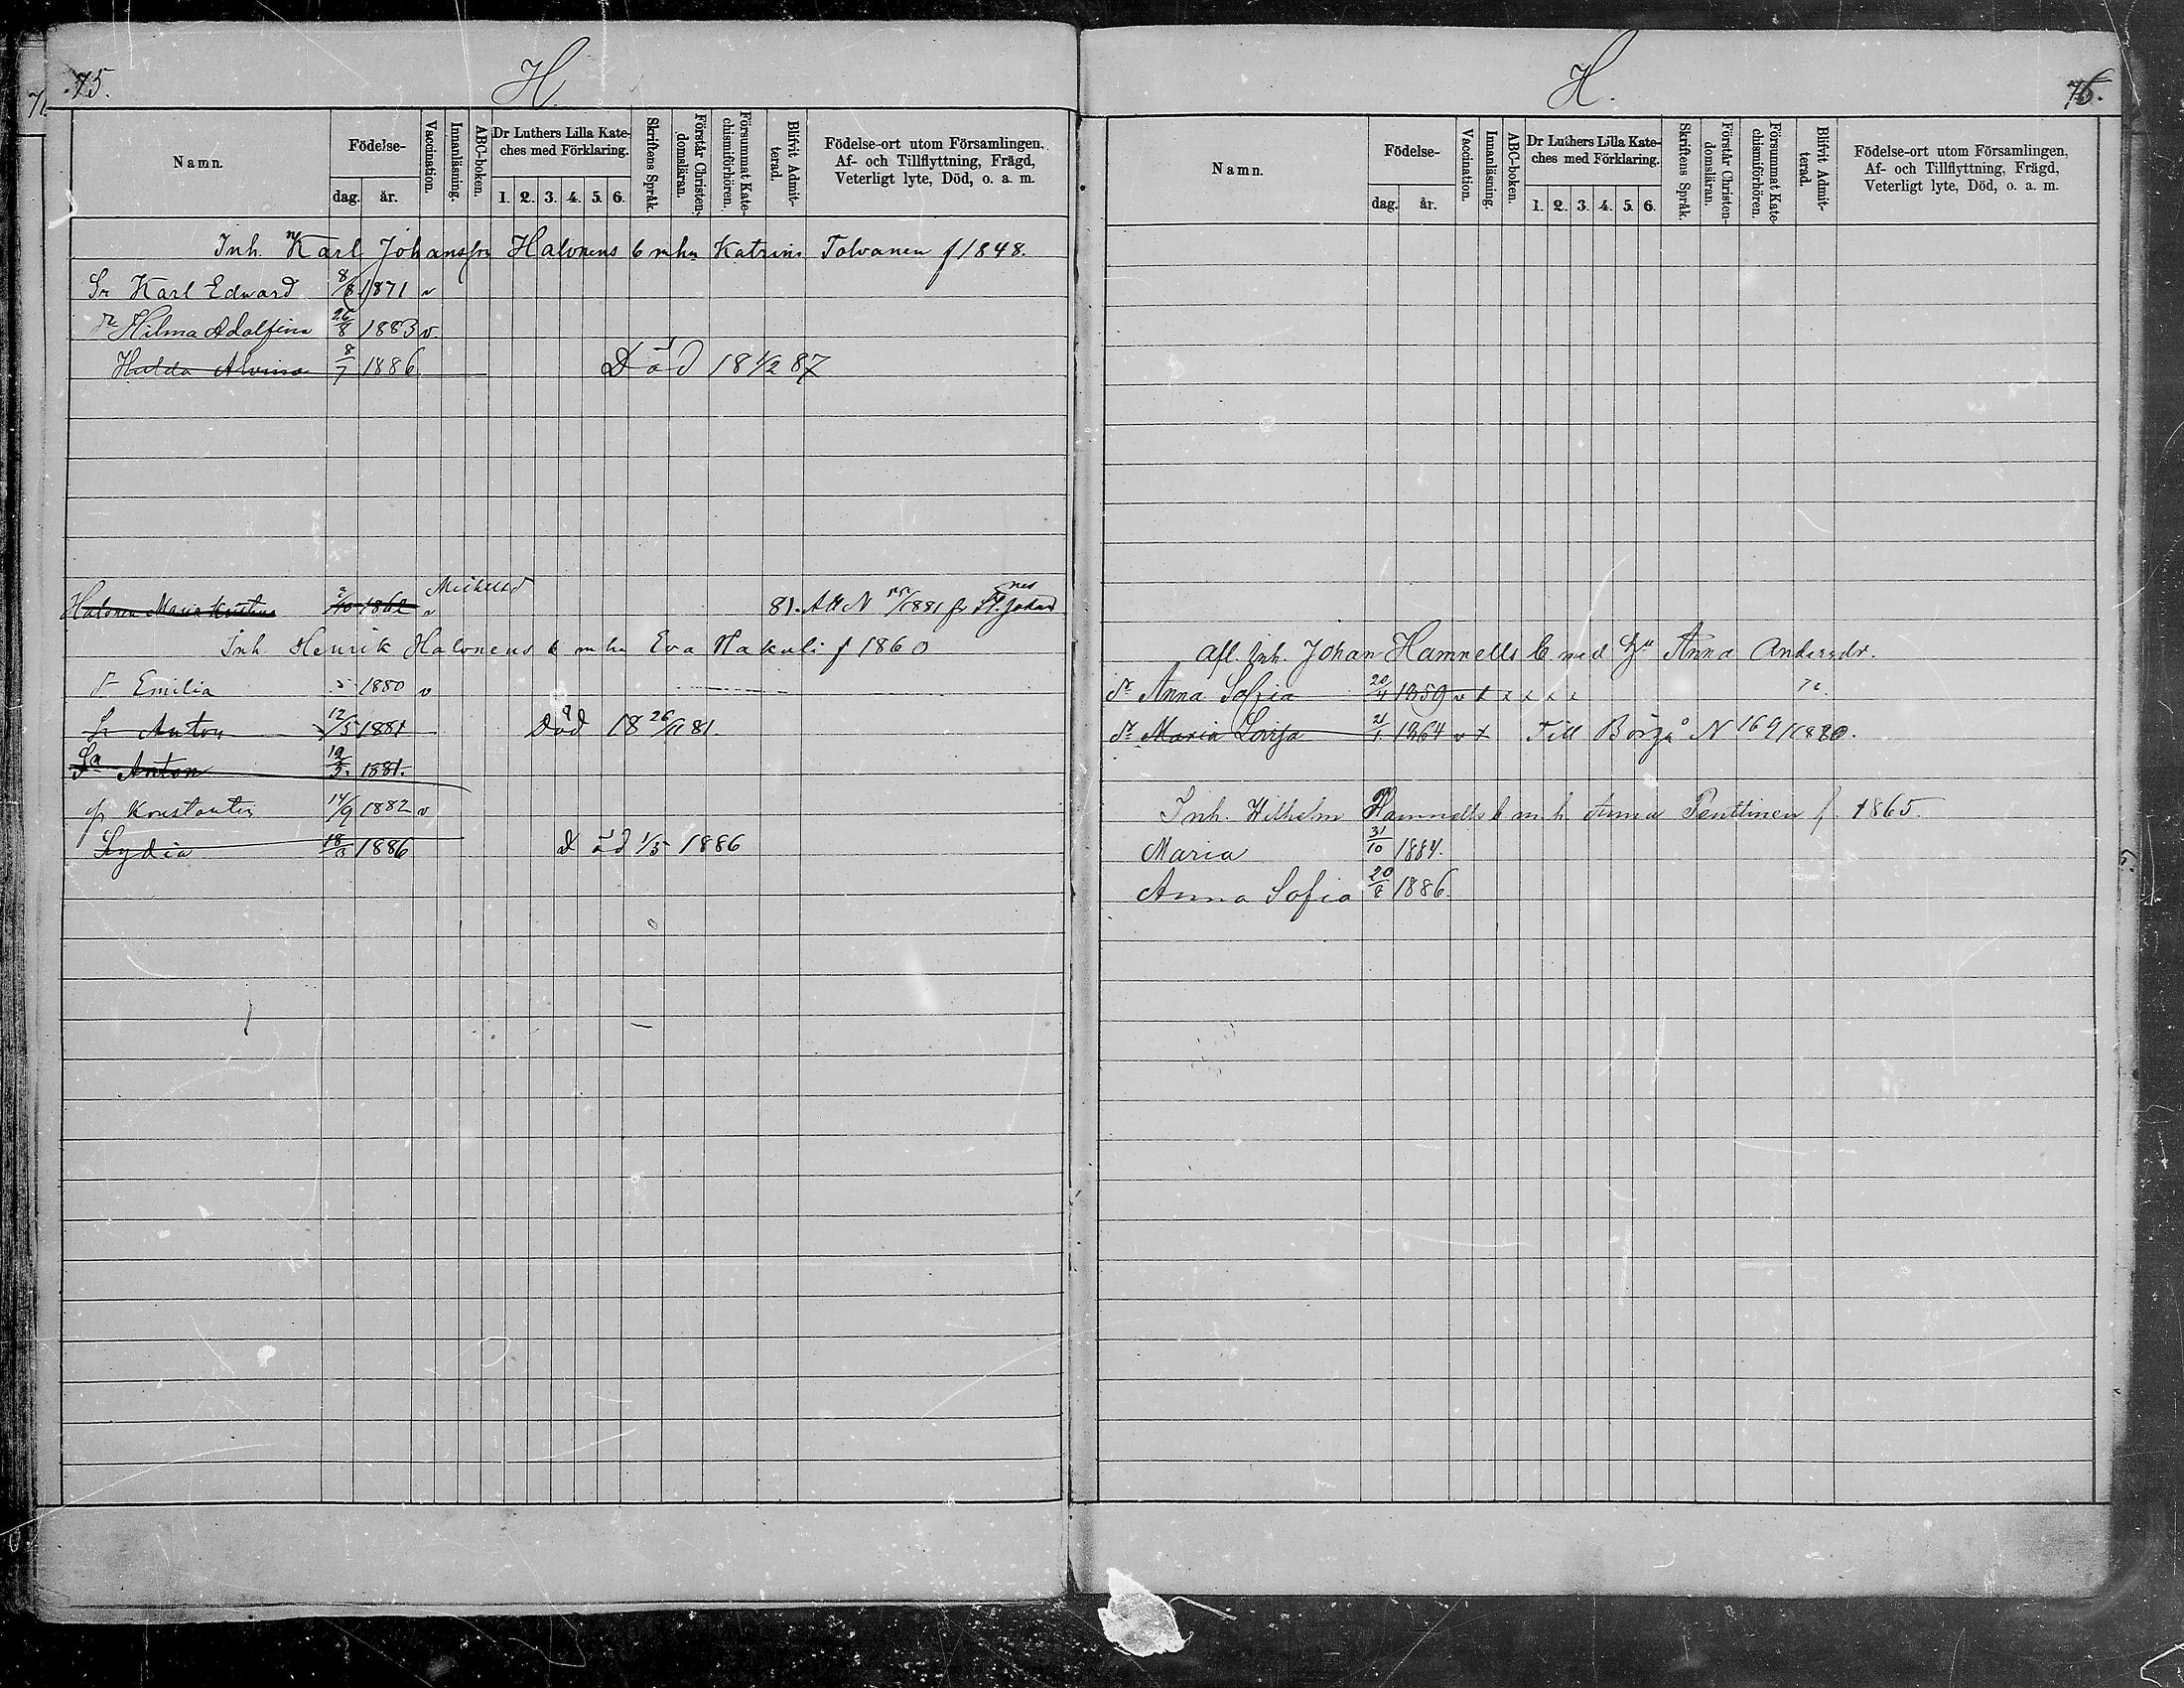 75.
H.
Namn.
Födelse-
dag.
år.
Vaccination.
Innanläsning.
ABC-boken.
Dr Luthers Lilla Kate-
ches med Förklaring.
1. 2. 3. 4. 5. 6.
Skriftens Språk.
Förstår Christen-
domsläran.
Försummat Kate-
chismiförhören.
Blifvit Admit-
terad.
Födelse-ort utom Församlingen,
Af- och Tillflyttning, Frägd,
Veterligt lyte, Död, o. a. m.
Inh. Karl Johansson Halonens b mhu Katrina Tolvanen f 1848.
Sn Karl Edward 8/8 1871 v
Dr Hilma Adolfina 25/8 1883 v.
Hulda Alvina 8/7 1886 Död 18 1/2 87
Halonen Maria Kristina 2/10 1862 v Michelsd 81. Att N 1881 fr St. Johannes
Inh. Henrik Halonens b m hu Eva Hakuli f 1860
Dr Emilia 1880 v
Sn Anton 12/5 1881 Död 18 26/11 81.
Sn Anton 12/5. 1881.
Sn Konstantin 14/9 1882 v
Lydia 18/3 1886 Död 1/5 1886
H.
76.
Namn.
Födelse-
dag.
år.
Vaccination.
Innanläsning.
ABC-boken.
Dr Luthers Lilla Kate-
ches med Förklaring.
1. 2. 3. 4. 5. 6.
Skriftens Språk.
Förstår Christen-
domsläran.
Försummat Kate-
chismiförhören.
Blifvit Admit-
terad.
Födelse-ort utom Församlingen,
Af- och Tillflyttning, Frägd,
Veterligt lyte, Död, o. a. m.
Afl. Inh. Johan Hamnells b med Hu Anna Andersdr.
Dr Anna Sofia 20/4 1859 v x x x x x
Dr Maria Lovisa 21/1 1864 v x Till Borgå N 169/1880.
Inh. Wilhelm Hamnells b m h Anna Penttinen f. 1865.
Maria 31/10 1884.
Anna Sofia 20/8 1886.